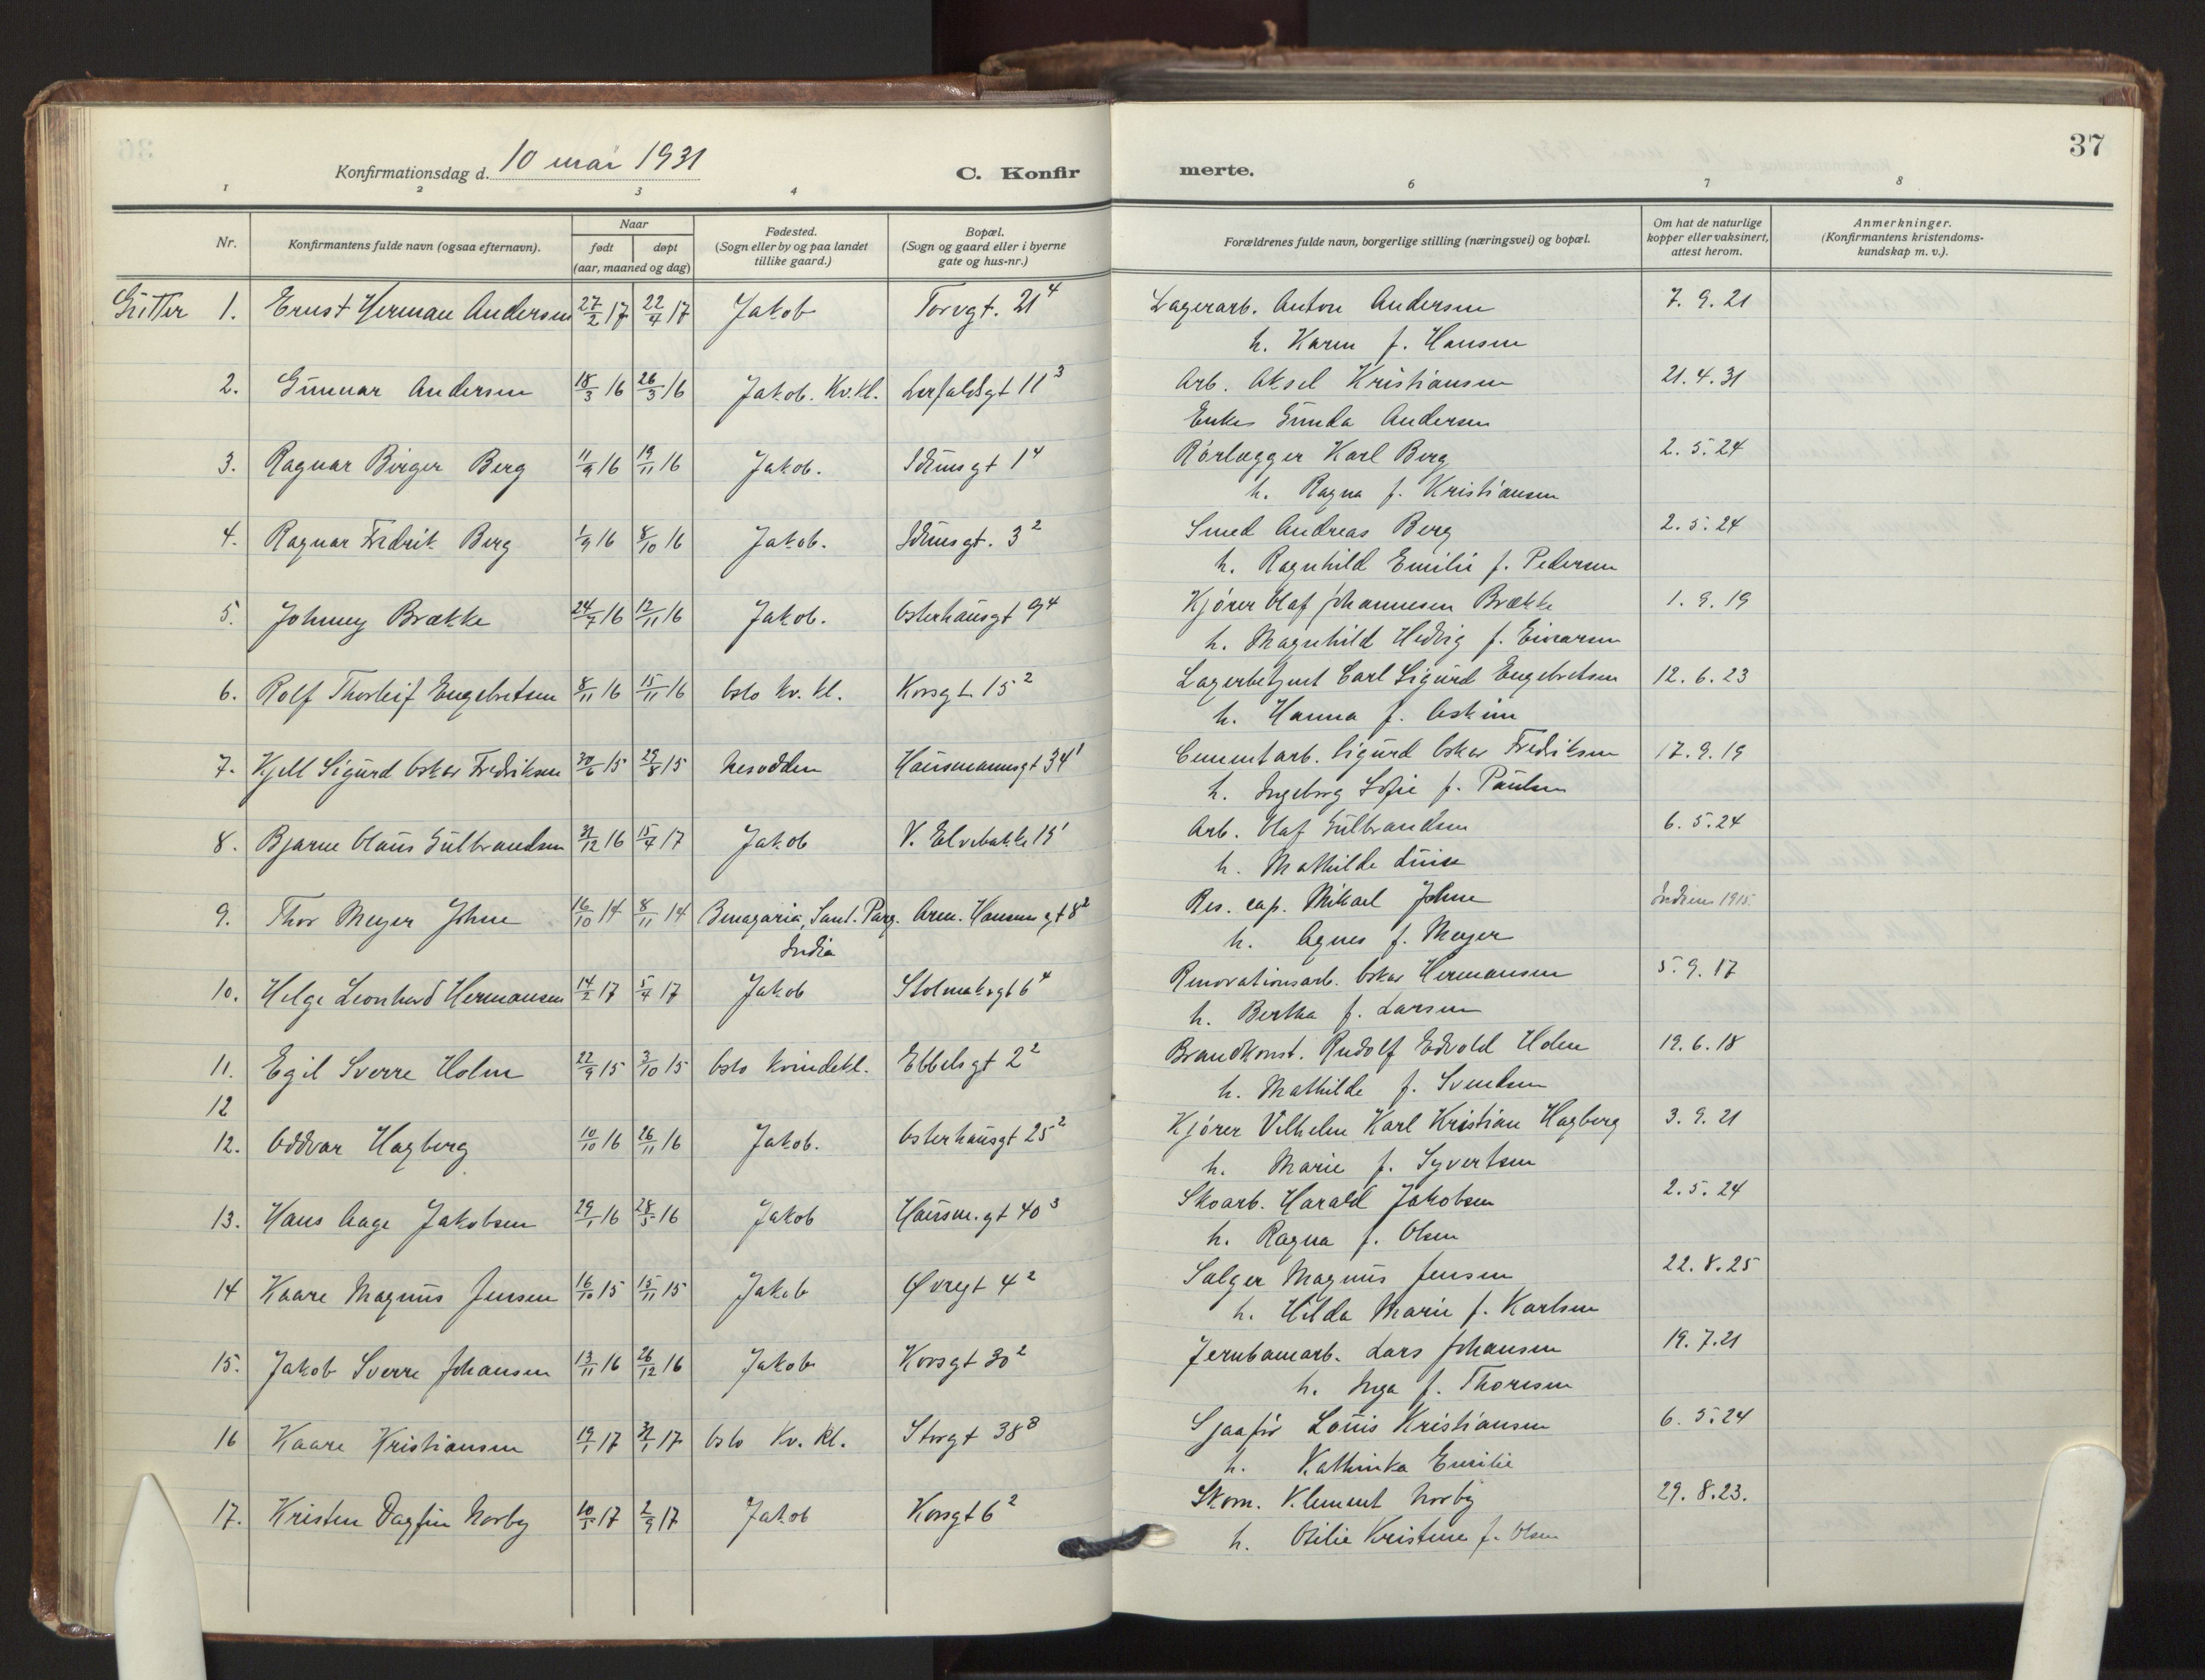 37
Konfirmationsdag d. 10 mai 1931
C. Konfir
merte.
1 2 3 4 6 7 8
Nr.
Konfirmantens fulde navn (ogsaa efternavn).
Naar
født døpt
(aar, maaned og dag)
Fødested.
(Sogn eller by og paa landet
tillike gaard.)
Bopæl.
(Sogn og gaard eller i byerne
gate og hus-nr.)
Forældrenes fulde navn, borgerlige stilling (næringsvei) og bopæl.
Om hat de naturlige
kopper eller vaksinert,
attest herom.
Anmerkninger.
(Konfirmantens kristendoms-
kundskap m. v.).
Gutter 1. Ernst Herman Andersen 27/2 17 22/4 17 Jakob Torvgt. 21 4 Lagerarb. Anton Andersen 7. 9. 21
h. Karen f. Hansen
2. Gunnar Andersen 18/3 16 26/3 16 Jakob. Kv. kl. Lerfaldsgt 11 3 Arb. Aksel Kristiansen 21. 4. 31
Enke Gunda Andersen
3. Ragnar Birger Berg 11/9 16 19/11 16 Jakob. Idunsgt 1 4 Rørlægger Karl Berg 2. 5. 24
h. Ragna f. Kristiansen
4. Ragnar Fredrik Berg 1/9 16 8/10 16 Jakob. Idunsgt. 3 2 Smed Andreas Berg 2. 5. 24
h. Ragnhild Emilie f. Pedersen
5. Johnny Brække 24/7 16 12/11 16 Jakob. Osterhausgt 9 4 Kjører Olaf Johannesen Brække 1. 9. 19
h. Magnhild Hedvig f. Einarsen
6. Rolf Thorleif Engebretsen 8/11 16 15/11 16 Oslo Kv. kl. Korsgt 15 2 Lagerbetjent Carl Sigurd Engebretsen 12. 6. 23
h. Hanna f. Askim
7. Kjell Sigurd Oskar Fredriksen 30/6 15 29/8 15 Nesodden Hausmannsgt 34 1 Cementarb. Sigurd Oskar Fredriksen 17. 9. 19
h. Ingeborg Sofie f. Paulsen
8. Bjarne Olaus Gulbrandsen 31/12 16 15/4 17 Jakob V. Elvebakke 15 1 Arb. Olaf Gulbrandsen 6. 5. 24
h. Mathilde Luise
9. Thor Meyer Johne 16/10 14 8/11 14 Benagaria, Sant. Parg. Arm. Hansens gt 8 2 Res. cap. Mikael Johne Indien 1915
India
h. Agnes f. Meyer
10. Helge Leonhard Hermansen 14/2 17 5/4 17 Jakob Stolmakgt 6 4 Renovationsarb. Oskar Hermansen 5. 9. 17
h. Bertha f. Larsen
11. Egil Sverre Holm 22/9 15 3/10 15 Oslo Kvindekl. Ebbelsgt 2 2 Brandkonst. Rudolf Edvold Holm 19. 6. 18
h. Mathilde f. Svendsen
12
12. Oddvar Hagberg 10/10 16 26/11 16 Jakob. Osterhausgt 25 2 Kjører Vilhelm Karl Kristian Hagberg 3. 9. 21
h. Marie f. Syvertsen
13. Hans Aage Jakobsen 29/1 16 28/5 16 Jakob Hausm. gt 40 3 Skoarb. Harald Jakobsen 2. 5. 24
h. Ragna f. Olsen
14 Kaare Magnus Jensen 16/10 15 15/11 15 Jakob Øvregt 4 2 Selger Magnus Jensen 22. 8. 25
h. Hilda Marie f. Karlsen
15. Jakob Sverre Johansen 13/11 16 26/12 16 Jakob Korsgt 30 2 Jernbanearb. Lars Johansen 19. 7. 21
h. Inga f. Thoresen
16 Kaare Kristiansen 19/1 17 31/1 17 Oslo Kv. kl. Storgt 38 3 Sjaafør Louis Kristiansen 6. 5. 24
h. Kathinka Emilie
17. Kristen Dagfin Norby 10/5 17 2/9 17 Jakob Korsgt 6 2 Skom. Klement Norby 29. 8. 23.
h. Otilie Kristine f. Olsen